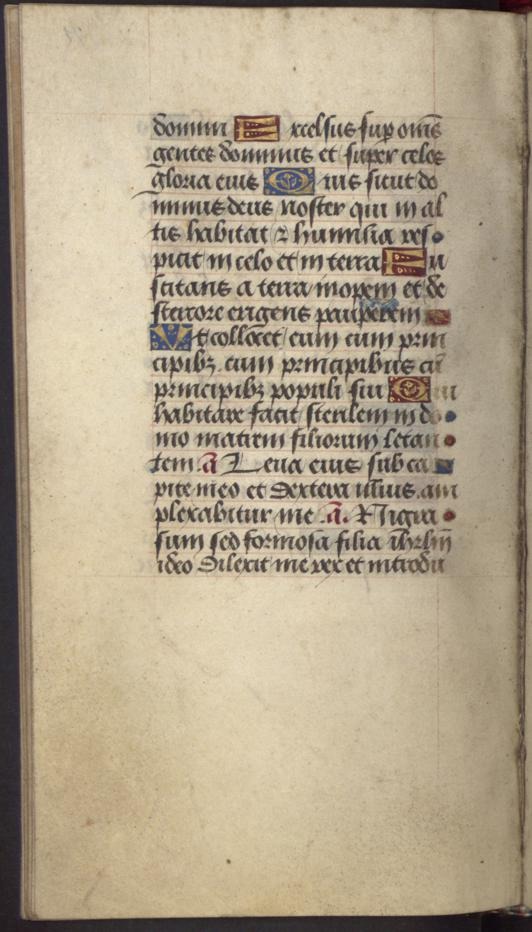 domini Excelsus sup om̄s
gentes dominus et super celos
gloria eius Quis sicut do
minus deus noster qui in al
tis habitat ⁊ humilia res
picit in celo et in terra Su
scitans a terra inopem et de
stercore erigens pauperem
Vt collocet eum cum prin
cipibꝫ cum principibus cū
principibꝫ populi sui Qui
habitare facit sterilem in do
mo matrem filiorum letan
tem a᷒ Leua eius sub ca
pite meo et dextera illius am
plexabitur me .a᷒. Nigra
sum sed formosa filia ihrlm̄
ideo dilexit me rex et introdu